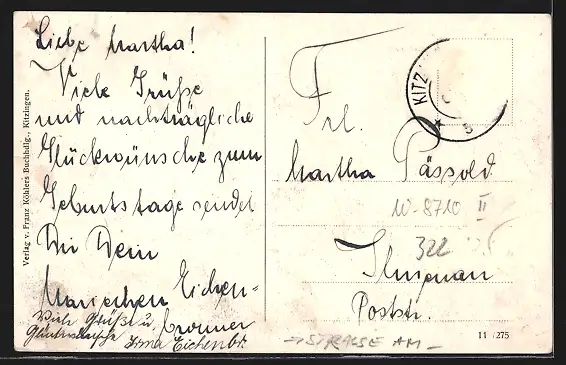 Liebe Martha!
Viele Grüße
und nachträgliche
Glückwünsche zum
Geburtstage sendet
Dir Dein
Mariechen Eichen-
bronner
Viele Grüße u.
Glückwünsche Irma Eichenbr.
Verlag v. Franz Köhlers Buchhdlg., Kitzingen.
KITZ
5
Frl.
Martha Pässold
W-8710 II
322
Ilmenau
Poststr.
→ STRASSE AM –
11 /275